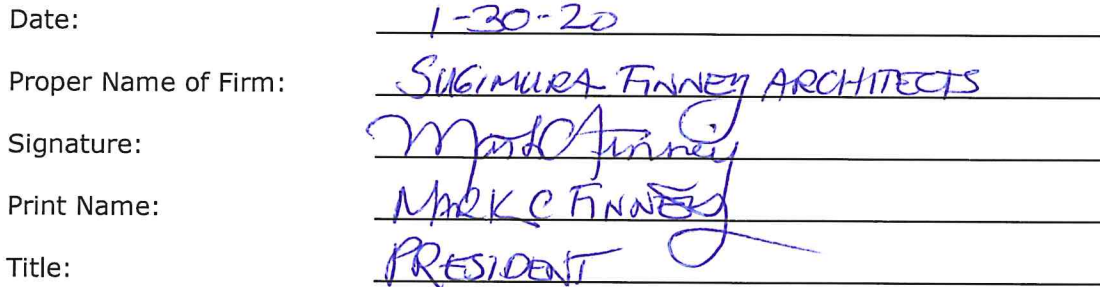 Date: 1-30-20
Proper Name of Firm: SUGIMURA FINNEY ARCHITECTS
Signature: Mark C Finney
Print Name: MARK C FINNEY
Title: PRESIDENT